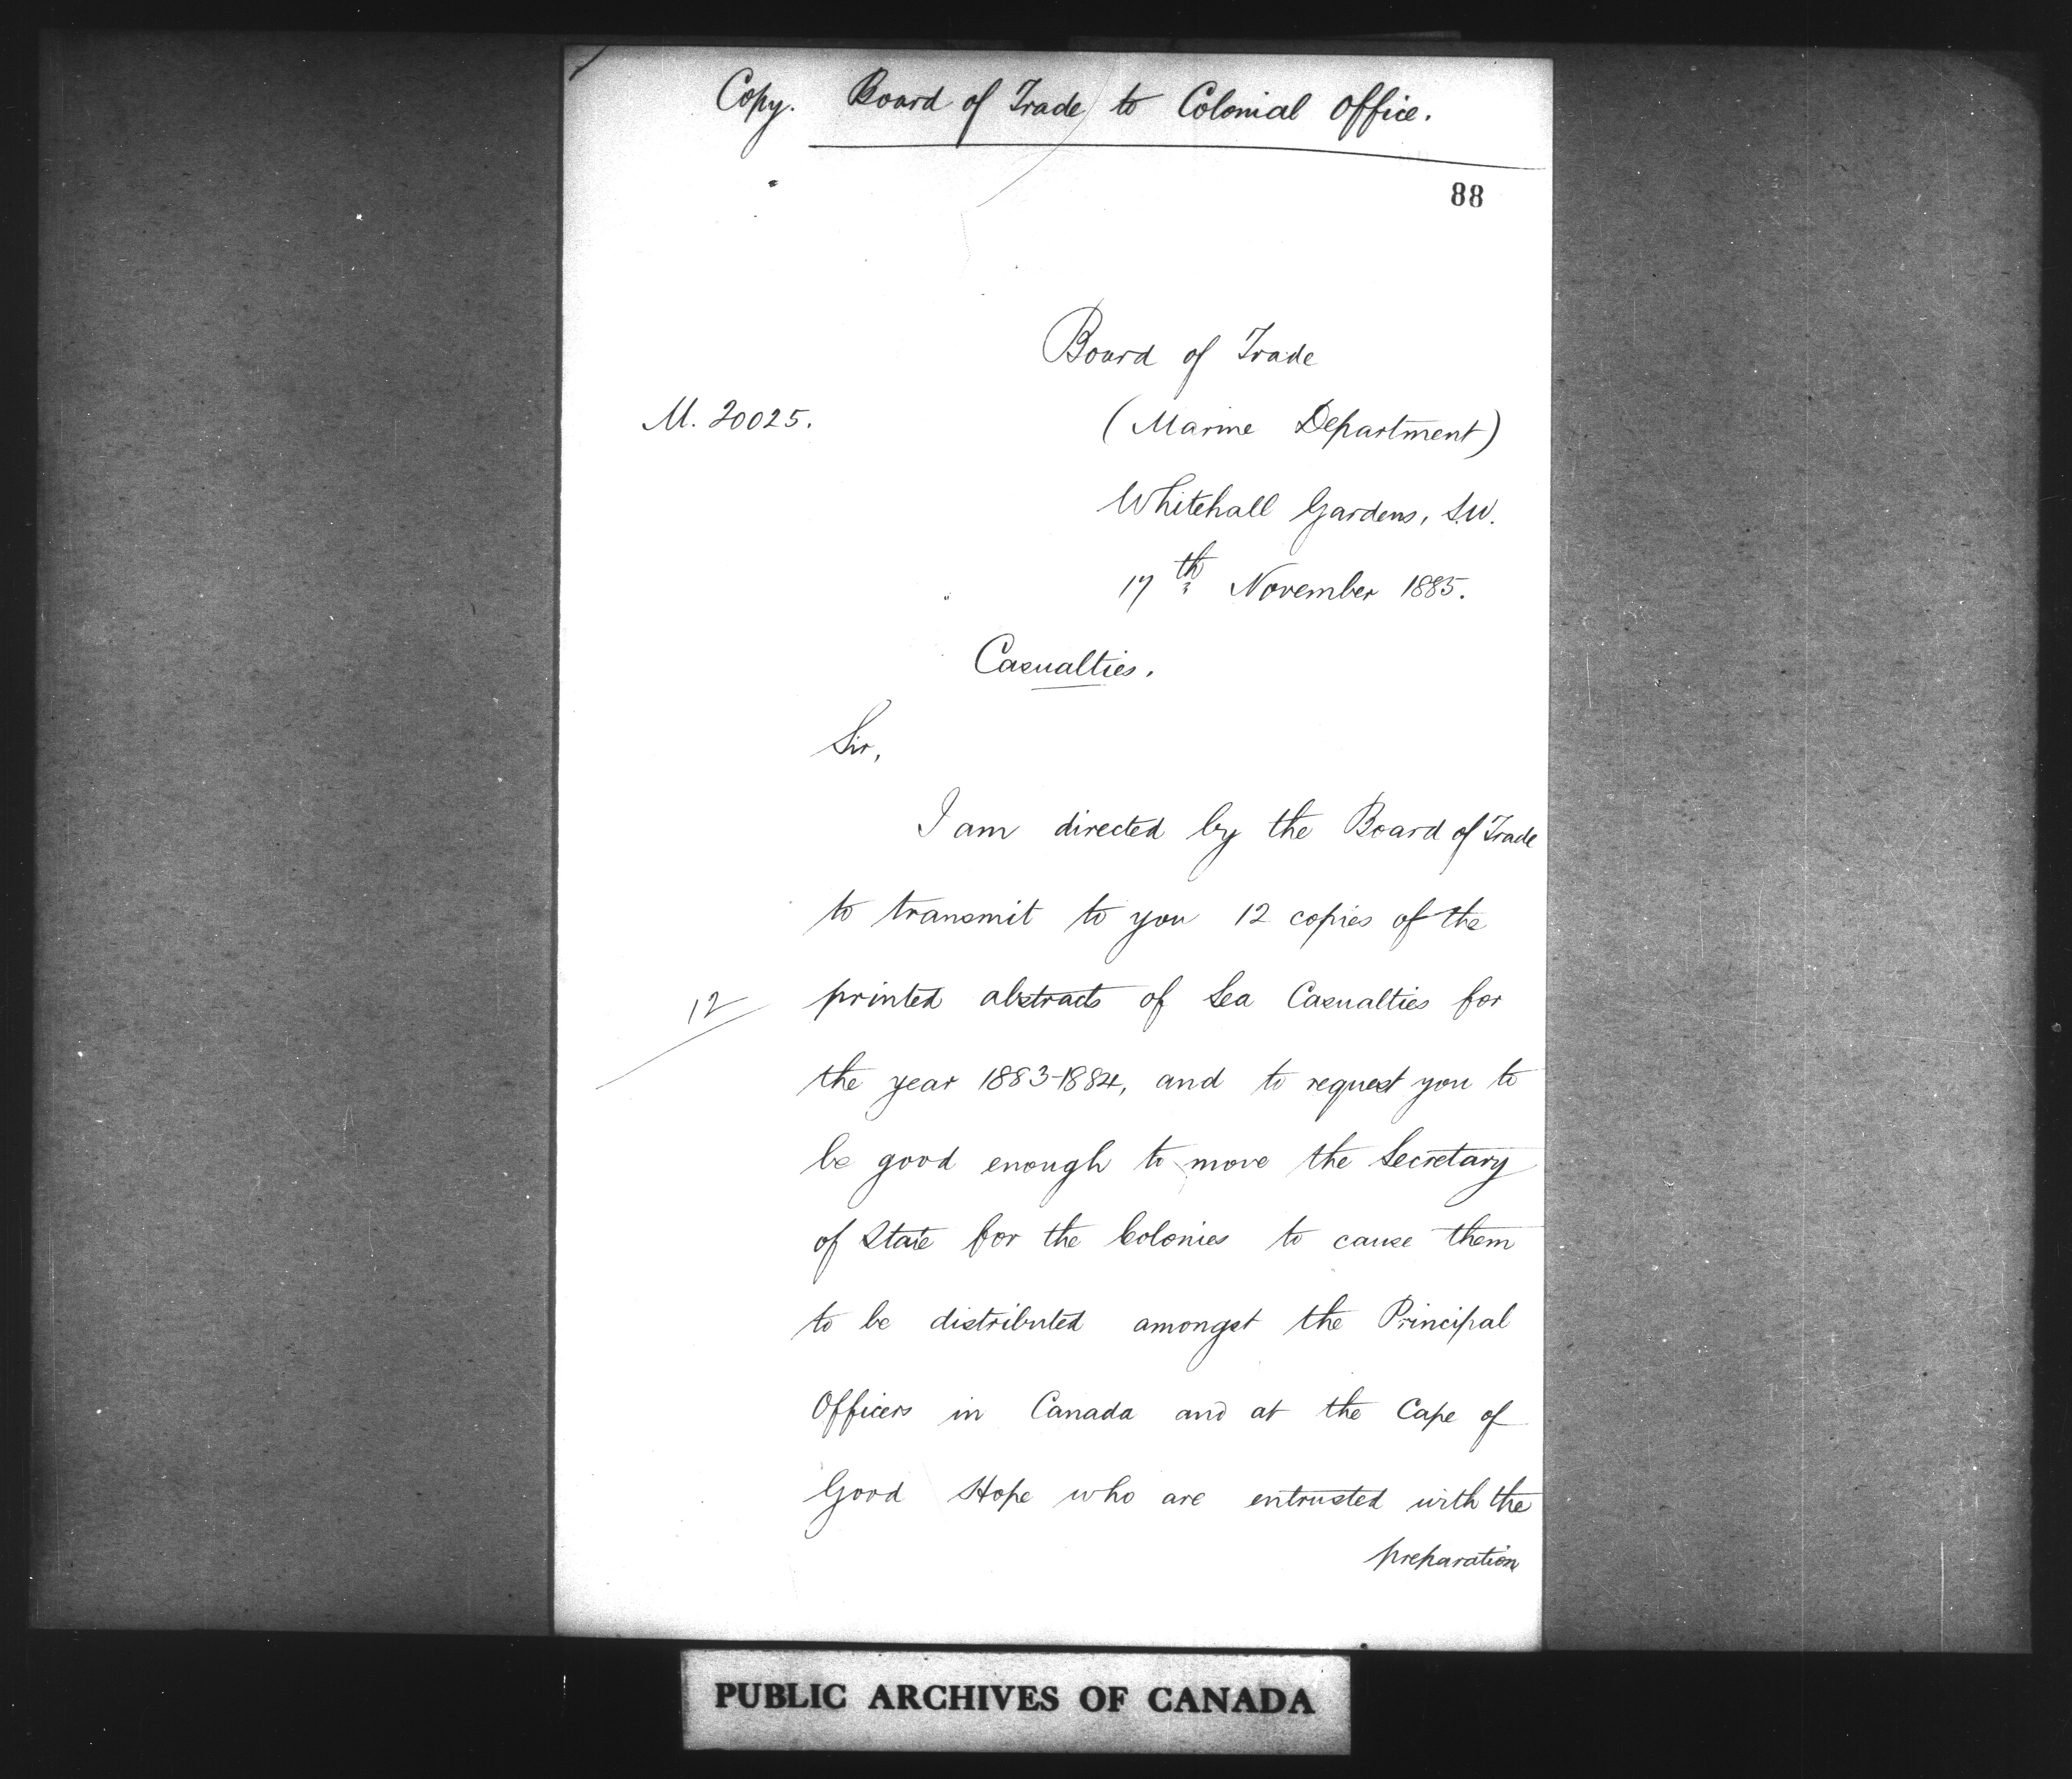 Copy. Board of Trade to Colonial Office.
88
Board of Trade
M. 20025.
(Marine Department)
Whitehall Gardens, S.W.
17th November 1885.
Casualties.
Sir,
I am directed by the Board of Trade
to transmit to you 12 copies of the
12 printed abstracts of Sea Casualties for
the year 1883-1884, and to request you to
be good enough to move the Secretary
of State for the Colonies to cause them
to be distributed amongst the Principal
Officers in Canada and at the Cape of
Good Hope who are entrusted with the
preparation
PUBLIC ARCHIVES OF CANADA